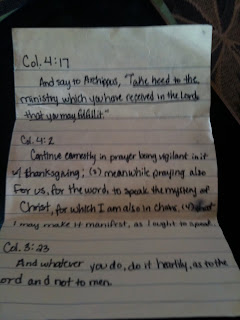 Col. 4:17
And say to Archippus, "Take heed to the
ministry which you have received in the Lord,
that you may fulfill it."
Col. 4:2
Continue earnestly in prayer being vigilant in it
w/ thanksgiving; (3) meanwhile praying also
for us, for the word, to speak the mystery of
Christ, for which I am also in chains. (4)
I may make it manifest, as I ought to speak.
Col. 3:23
And whatever you do, do it heartily, as to the
ord and not to men.